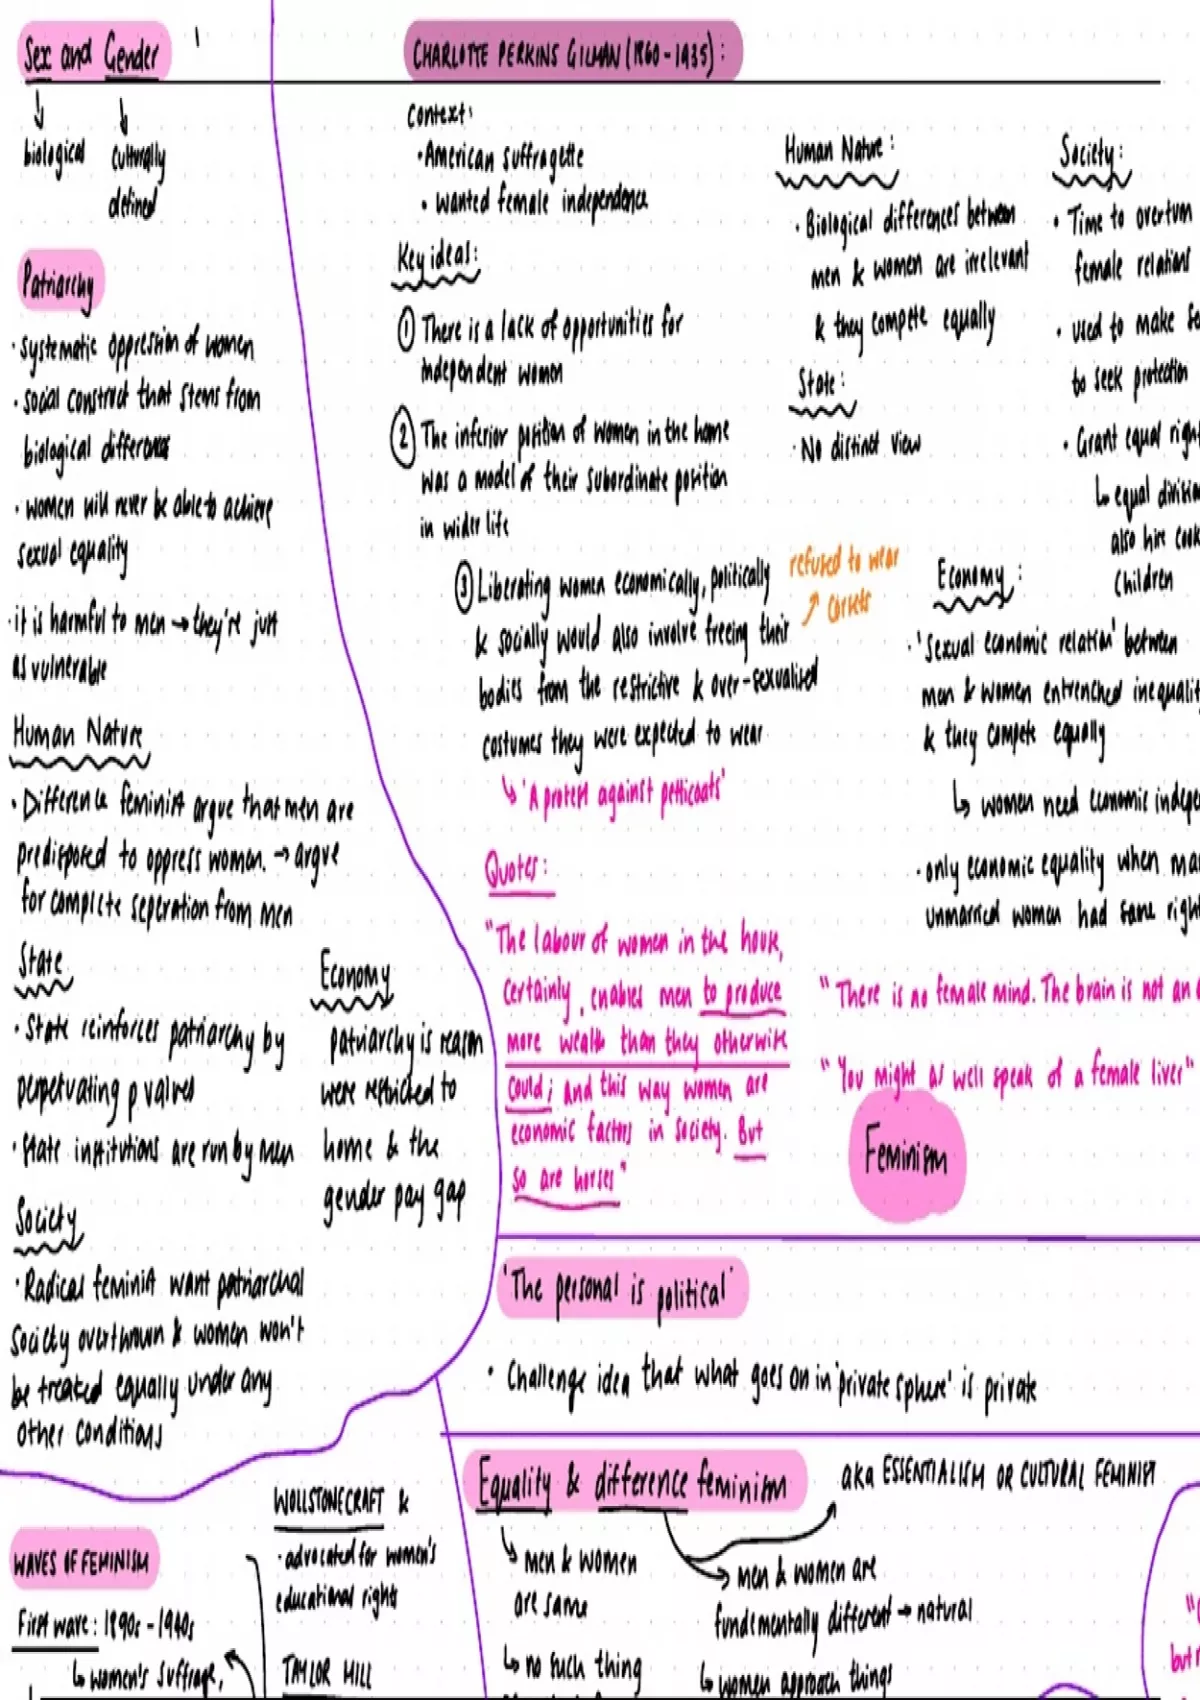 Sex and Gender
biological culturally
defined
Patriarchy
· systematic oppression of women
· social construct that stems from
biological differences
· women will never be able to achieve
sexual equality
· it is harmful to men → they're just
as vulnerable
Human Nature
· Difference feminist argue that men are
predisposed to oppress women. → argue
for complete seperation from men
State
· State reinforces patriarchy by
perpetuating p values
· State institutions are run by men
Economy
patriarchy is reason
were restricted to
home & the
gender pay gap
Society
· Radical feminist want patriarchal
society overthrown & women won't
be treated equally under any
other conditions
CHARLOTTE PERKINS GILMAN (1860-1935):
Context:
· American suffragette
· wanted female independence
Key ideas:
① There is a lack of opportunities for
independent women
② The inferior position of women in the home
was a model of their subordinate position
in wider life
③ Liberating women economically, politically
& socially would also involve freeing their
bodies from the restrictive & over-sexualised
costumes they were expected to wear
↳ 'A protest against petticoats'
refused to wear
corsets
Quotes:
"The labour of women in the house,
certainly, enables men to produce
more wealth than they otherwise
could; and this way women are
economic factors in society. But
so are horses"
Human Nature:
· Biological differences between
men & women are irrelevant
& they compete equally
State:
· No distinct view
Society:
· Time to overturn
female relations
· used to make
to seek protection
· Grant equal
↳ equal
also hire
children
Economy:
· 'Sexual economic relation' between
men & women entrenched
& they compete equally
↳ women need economic
· only economic equality when
unmarried women had same
"There is no female mind. The brain is not an
"You might as well speak of a female liver"
Feminism
'The personal is political'
· Challenge idea that what goes on in 'private sphere' is private
Equality & difference feminism
aka ESSENTIALISM OR CULTURAL FEMINIST
↳ men & women
are same
↳ no such thing
men & women are
fundementally different → natural
↳ women approach things
WAVES OF FEMINISM
First wave: 1890s - 1940s
↳ women's suffrage,
WOLLSTONECRAFT &
· advocated for women's
educational rights
TAYLOR HILL